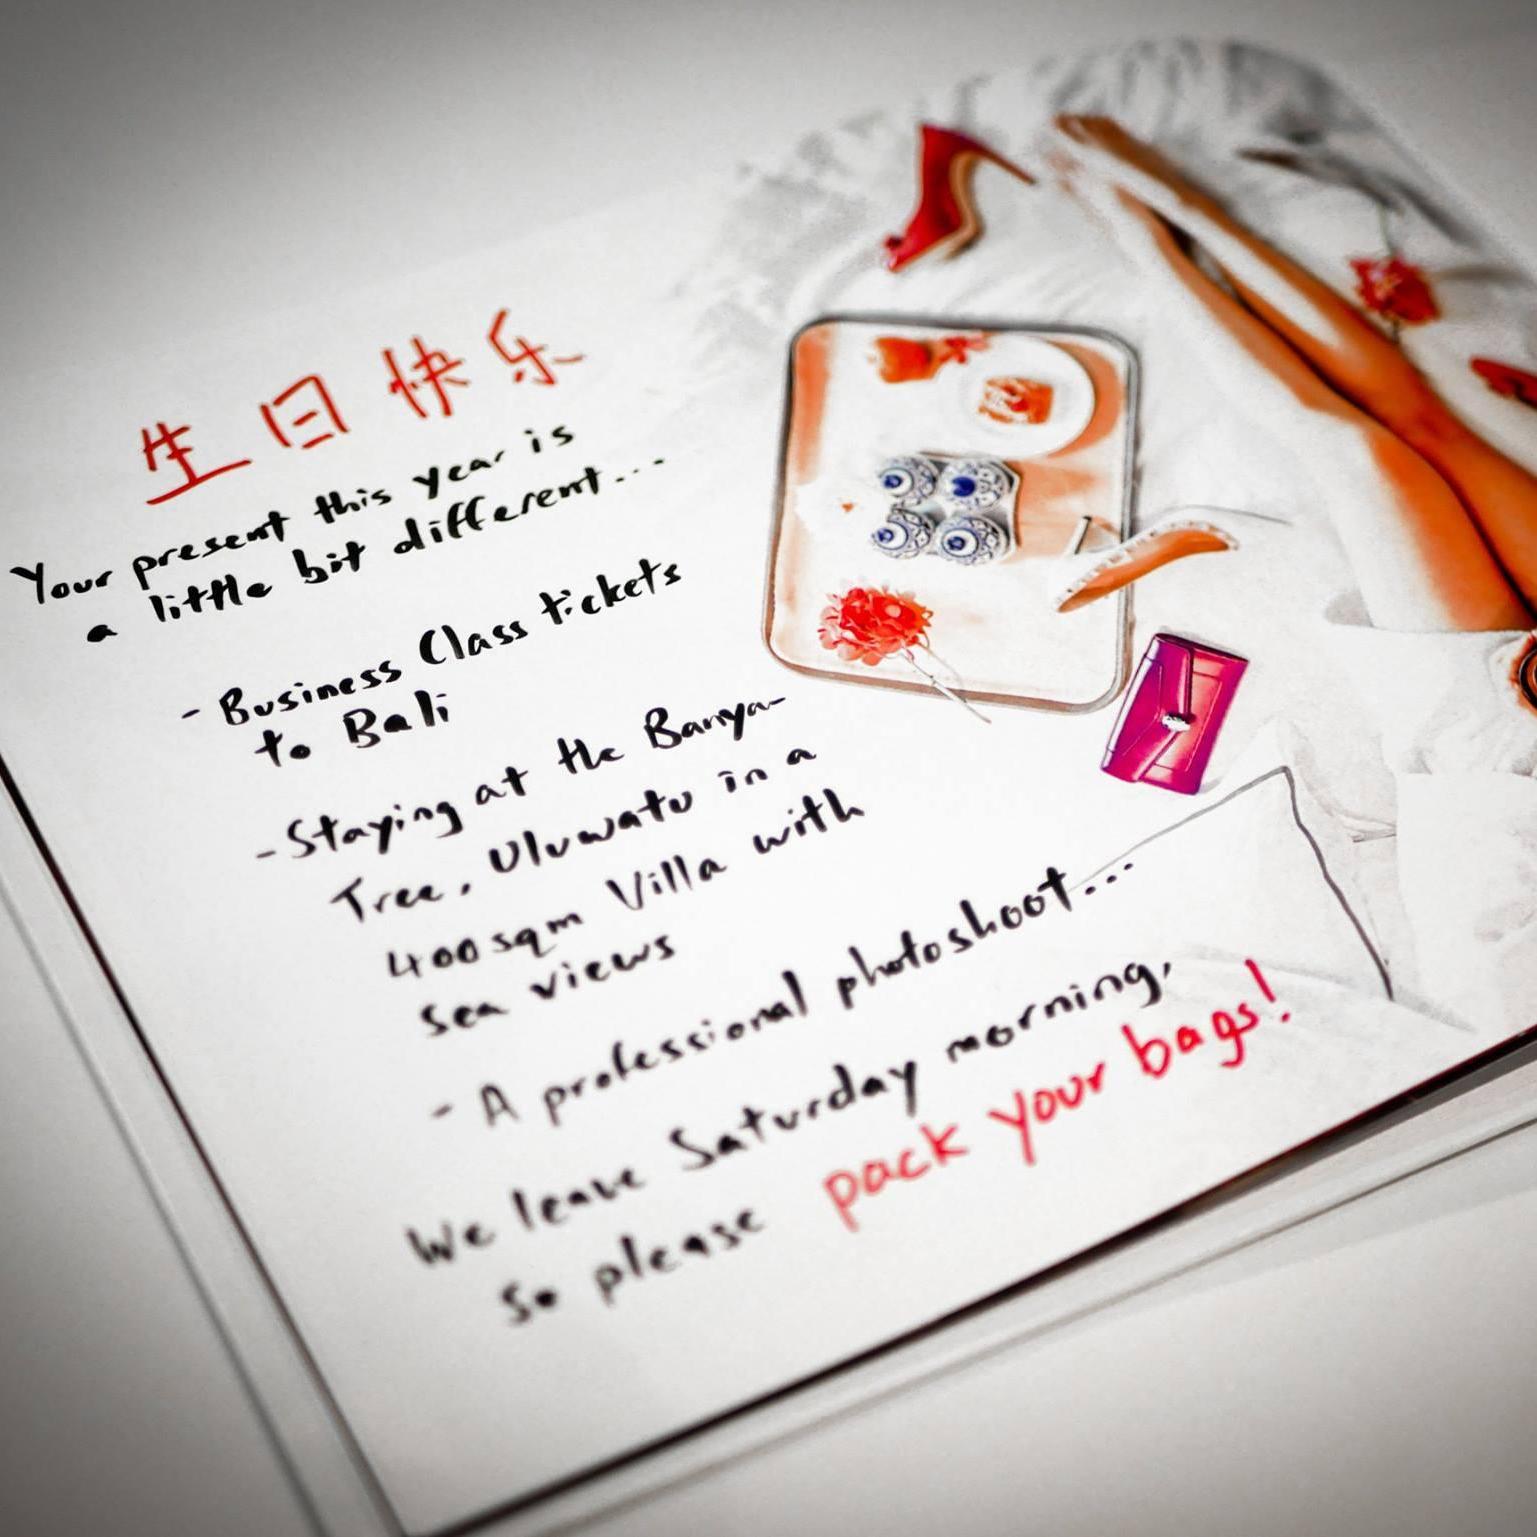 生日快乐
Your present this year is
a little bit different...
- Business Class tickets
to Bali
- Staying at the Banya-
Tree, Uluwatu in a
400sqm Villa with
Sea views
- A professional photoshoot...
We leave Saturday morning,
So please pack your bags!